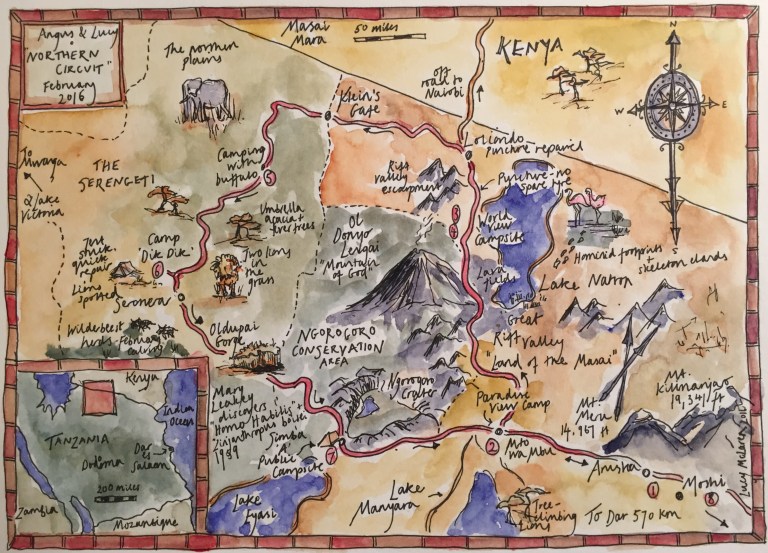 Angus & Lucy
NORTHERN
CIRCUIT"
February
2016
The northern
plains
Masai
Mara
50 miles
off
road to
Nairobi
KENYA
N
W
E
S
Klein's
Gate
Loliondo
Puncture repaired
To
Mwanza
&
Lake
Victoria
THE
SERENGETI
Camping
with
buffalo
5
Rift
Valley
escarpment
Puncture - no
spare tyre
Umbrella
acacia +
fever trees
Ol
Donyo
Lengai
"Mountain
of God"
3
4
World
View
Campsite
Camp
'Dik Dik'
6
Tent
stuck.
quick
repair
Lions
spotted
Two lions
in the
grass
Hominid footprints +
skeleton elands
Lava
fields
Lake Natron
Seronera
Wildebeest
herds
February
calving
Oldupai
Gorge
NGOROGORO
CONSERVATION
AREA
Great
Rift
Valley
"Land of the Masai"
Ngorogoro
Crater
Mt.
Kilimanjaro
19,341 ft
Mt.
Meru
14,967 ft
Paradise
View Camp
Mary
Leakey
discovers
"Homo Habilis" +
zinjanthropus boisei
1959
Simba
A
Public
Campsite
7
2
Mto
wa Mbu
Arusha
1
Moshi
8
Lake
Eyasi
Lake
Manyara
Tree-
climbing
lions
To Dar 570 km
Lucy McLaren 2016
Kenya
Indian
Ocean
TANZANIA
Dodoma
Dar
es
Salaam
200 miles
Zambia
Mozambique